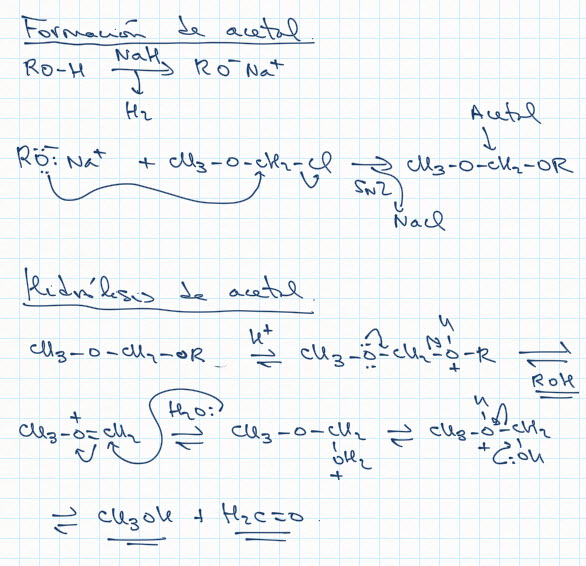 Formación de acetal.
RO-H NaH RO⁻Na⁺
H₂
Acetal
RO:⁻Na⁺ + CH₃-O-CH₂-Cl SN2 CH₃-O-CH₂-OR
NaCl
Hidrólisis de acetal.
CH₃-O-CH₂-OR H⁺ ⇌ CH₃-O-CH₂-O⁺(H)-R ⇌ ROH
CH₃-O⁺=CH₂ H₂O: ⇌ CH₃-O-CH₂-OH₂⁺ ⇌ CH₃-O⁺(H)-CH₂-OH
⇌ CH₃OH + H₂C=O.